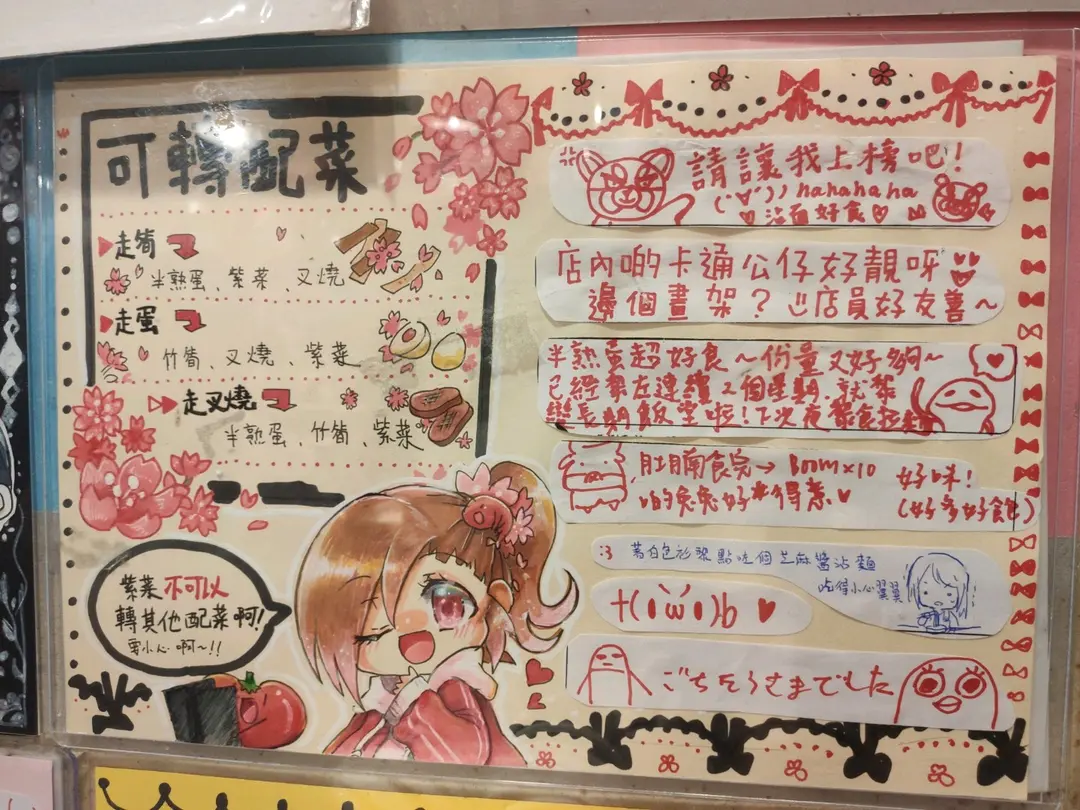 可轉配菜
走筍
半熟蛋、紫菜、叉燒
走蛋
竹筍、叉燒、紫菜
走叉燒
半熟蛋、竹筍、紫菜
紫菜不可以
轉其他配菜啊!
要小心啊~!!
請讓我上榜吧!
(´∀`)) hahahaha
♥沾面好食♥
店內啲卡通公仔好靚呀
邊個畫架? 店員好友善~
半熟蛋超好食~份量又好夠~
已經黎左連續2個星期,就黎
變長期飯堂啦!下次再黎食拉麵
肚腩食完→Boom×10 好味!
啲兔兔好得意♥ (好多好飽)
:3 著白色衫黎點咗個芝麻醬沾麵
吃得小心翼翼
+(•̀ω•́)b ♥
ごちそうさまでした